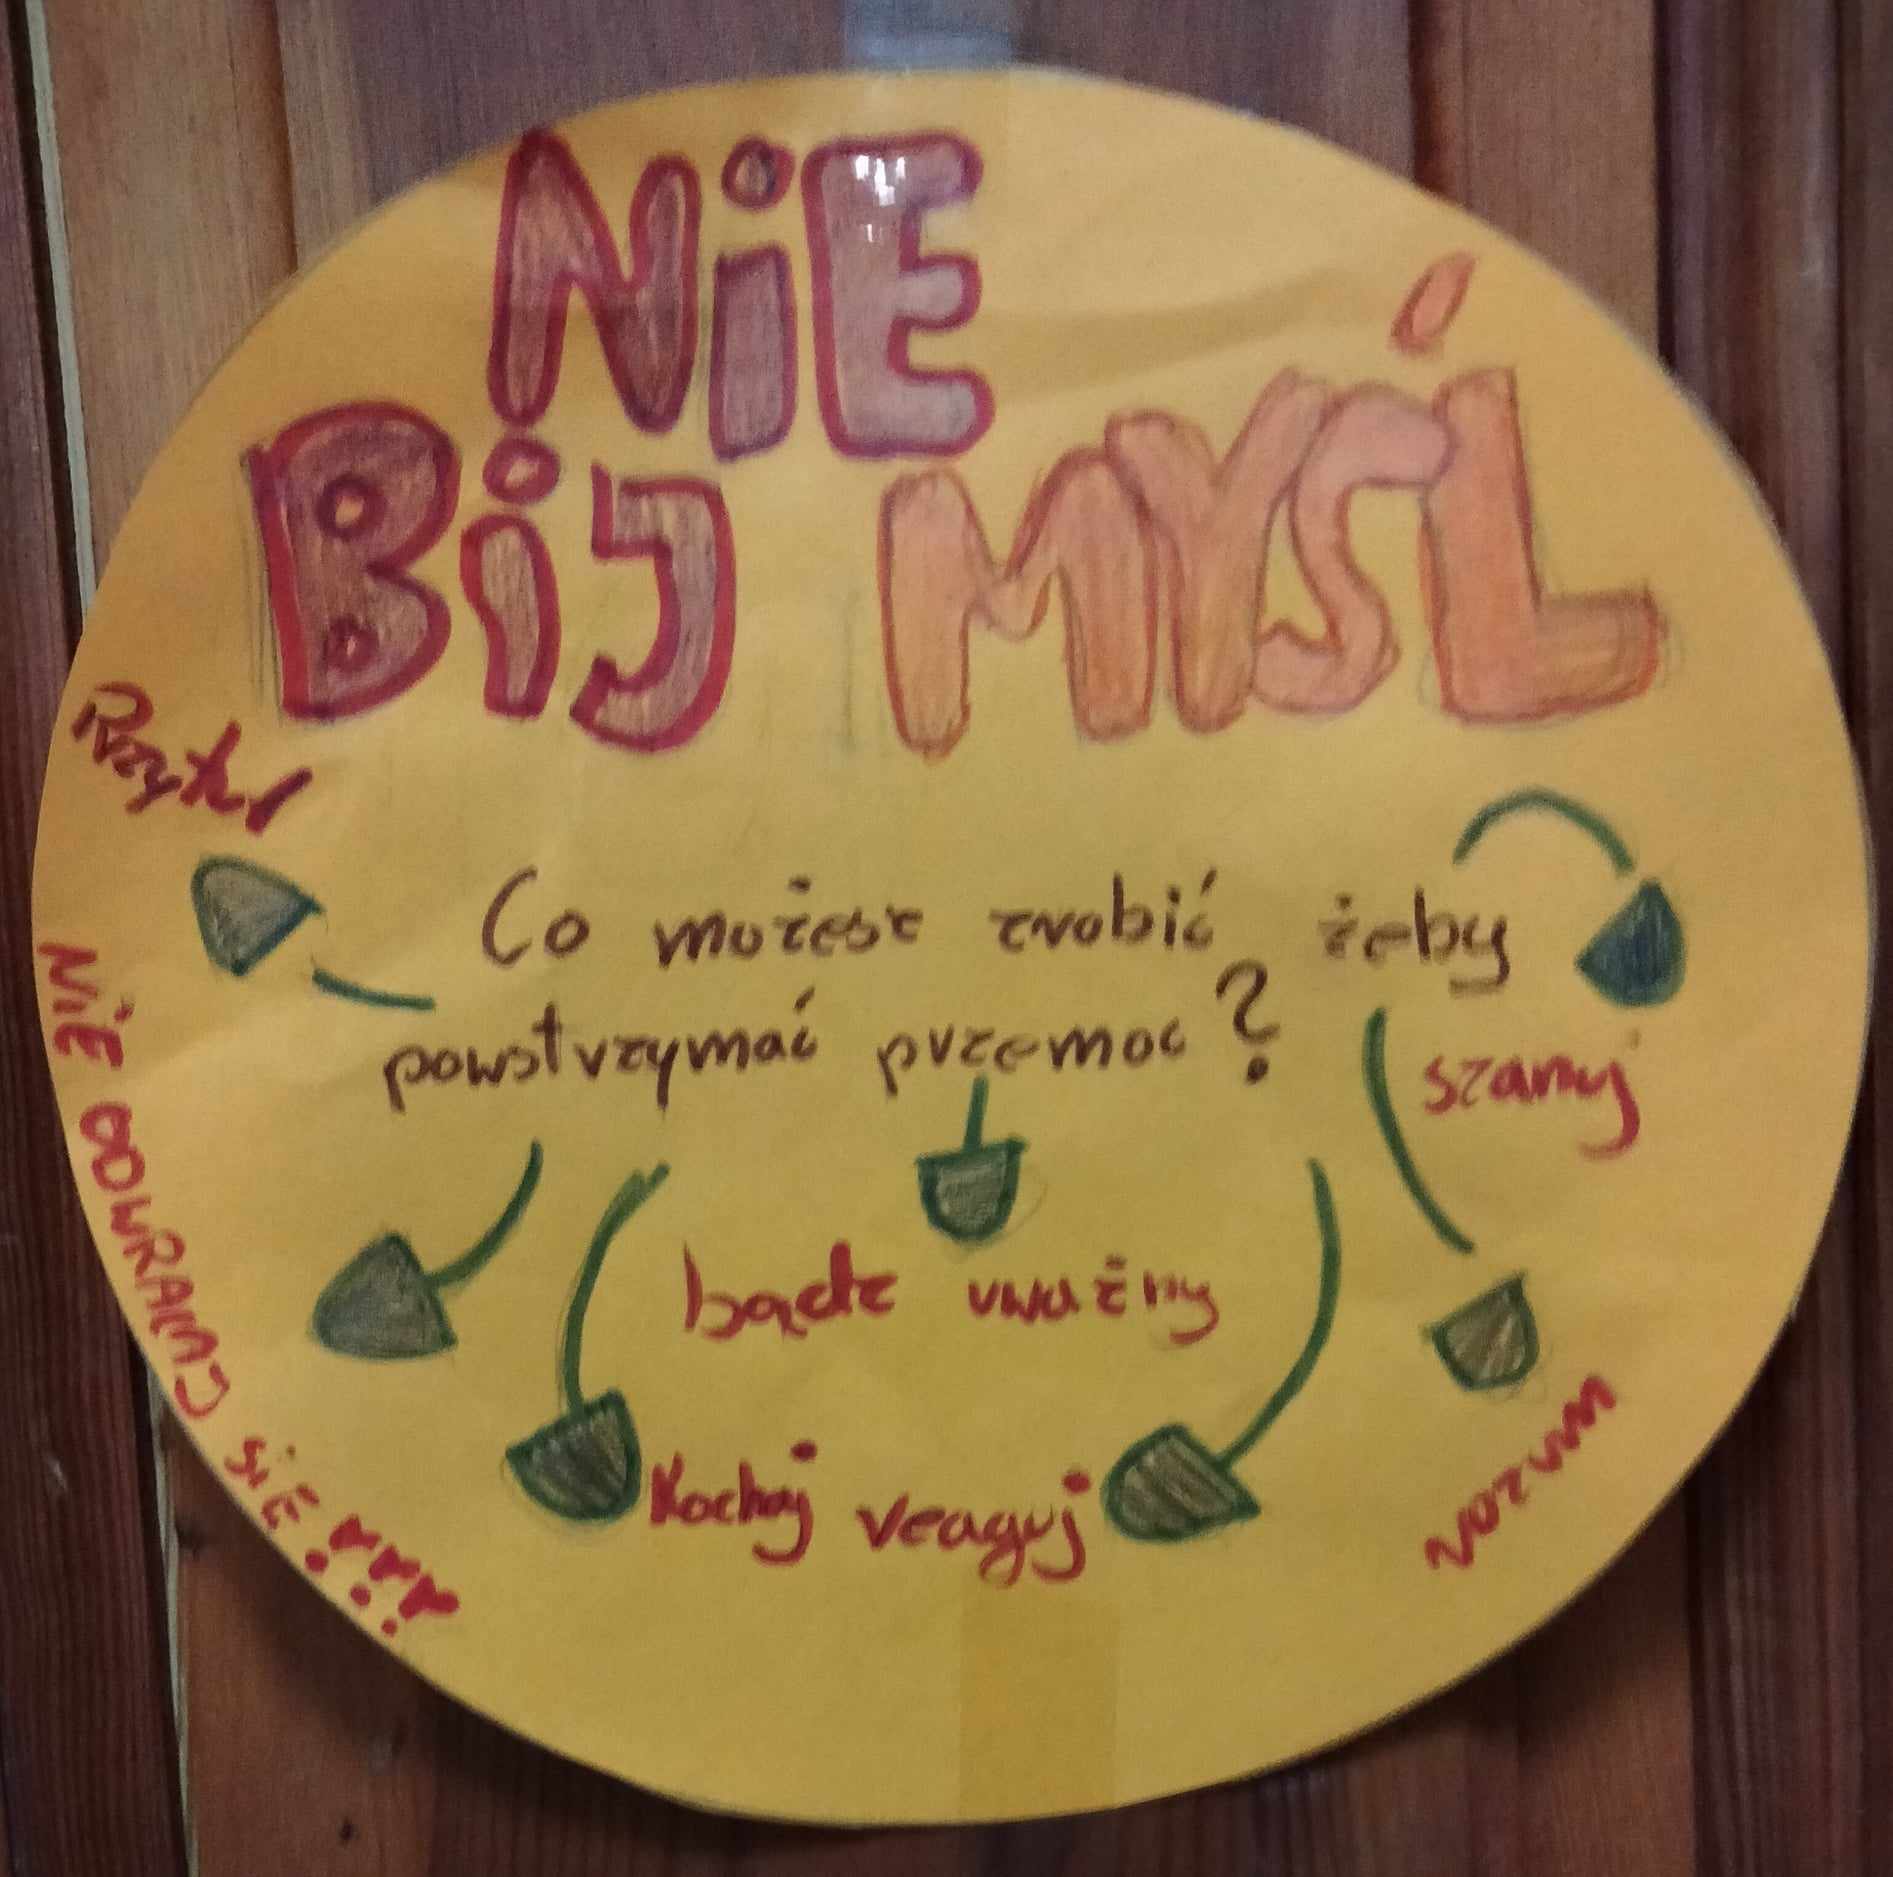 NiE
BiJ MYŚL
Przytul
Co możesz zrobić żeby
powstrzymać przemoc?
szanuj
NiE ODWRACAJ SIĘ !!!
bądz uważny
Kochaj reaguj
rozum